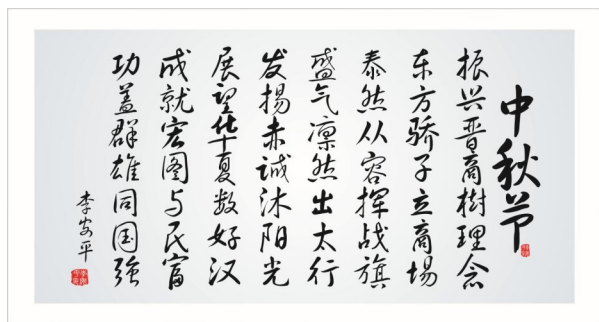 中秋节
振兴晋商树理念
东方骄子立商场
泰然从容挥战旗
盛气凛然出太行
发扬赤诚沐阳光
展望华夏数好汉
成就宏图与民富
功盖群雄同国强
李安平